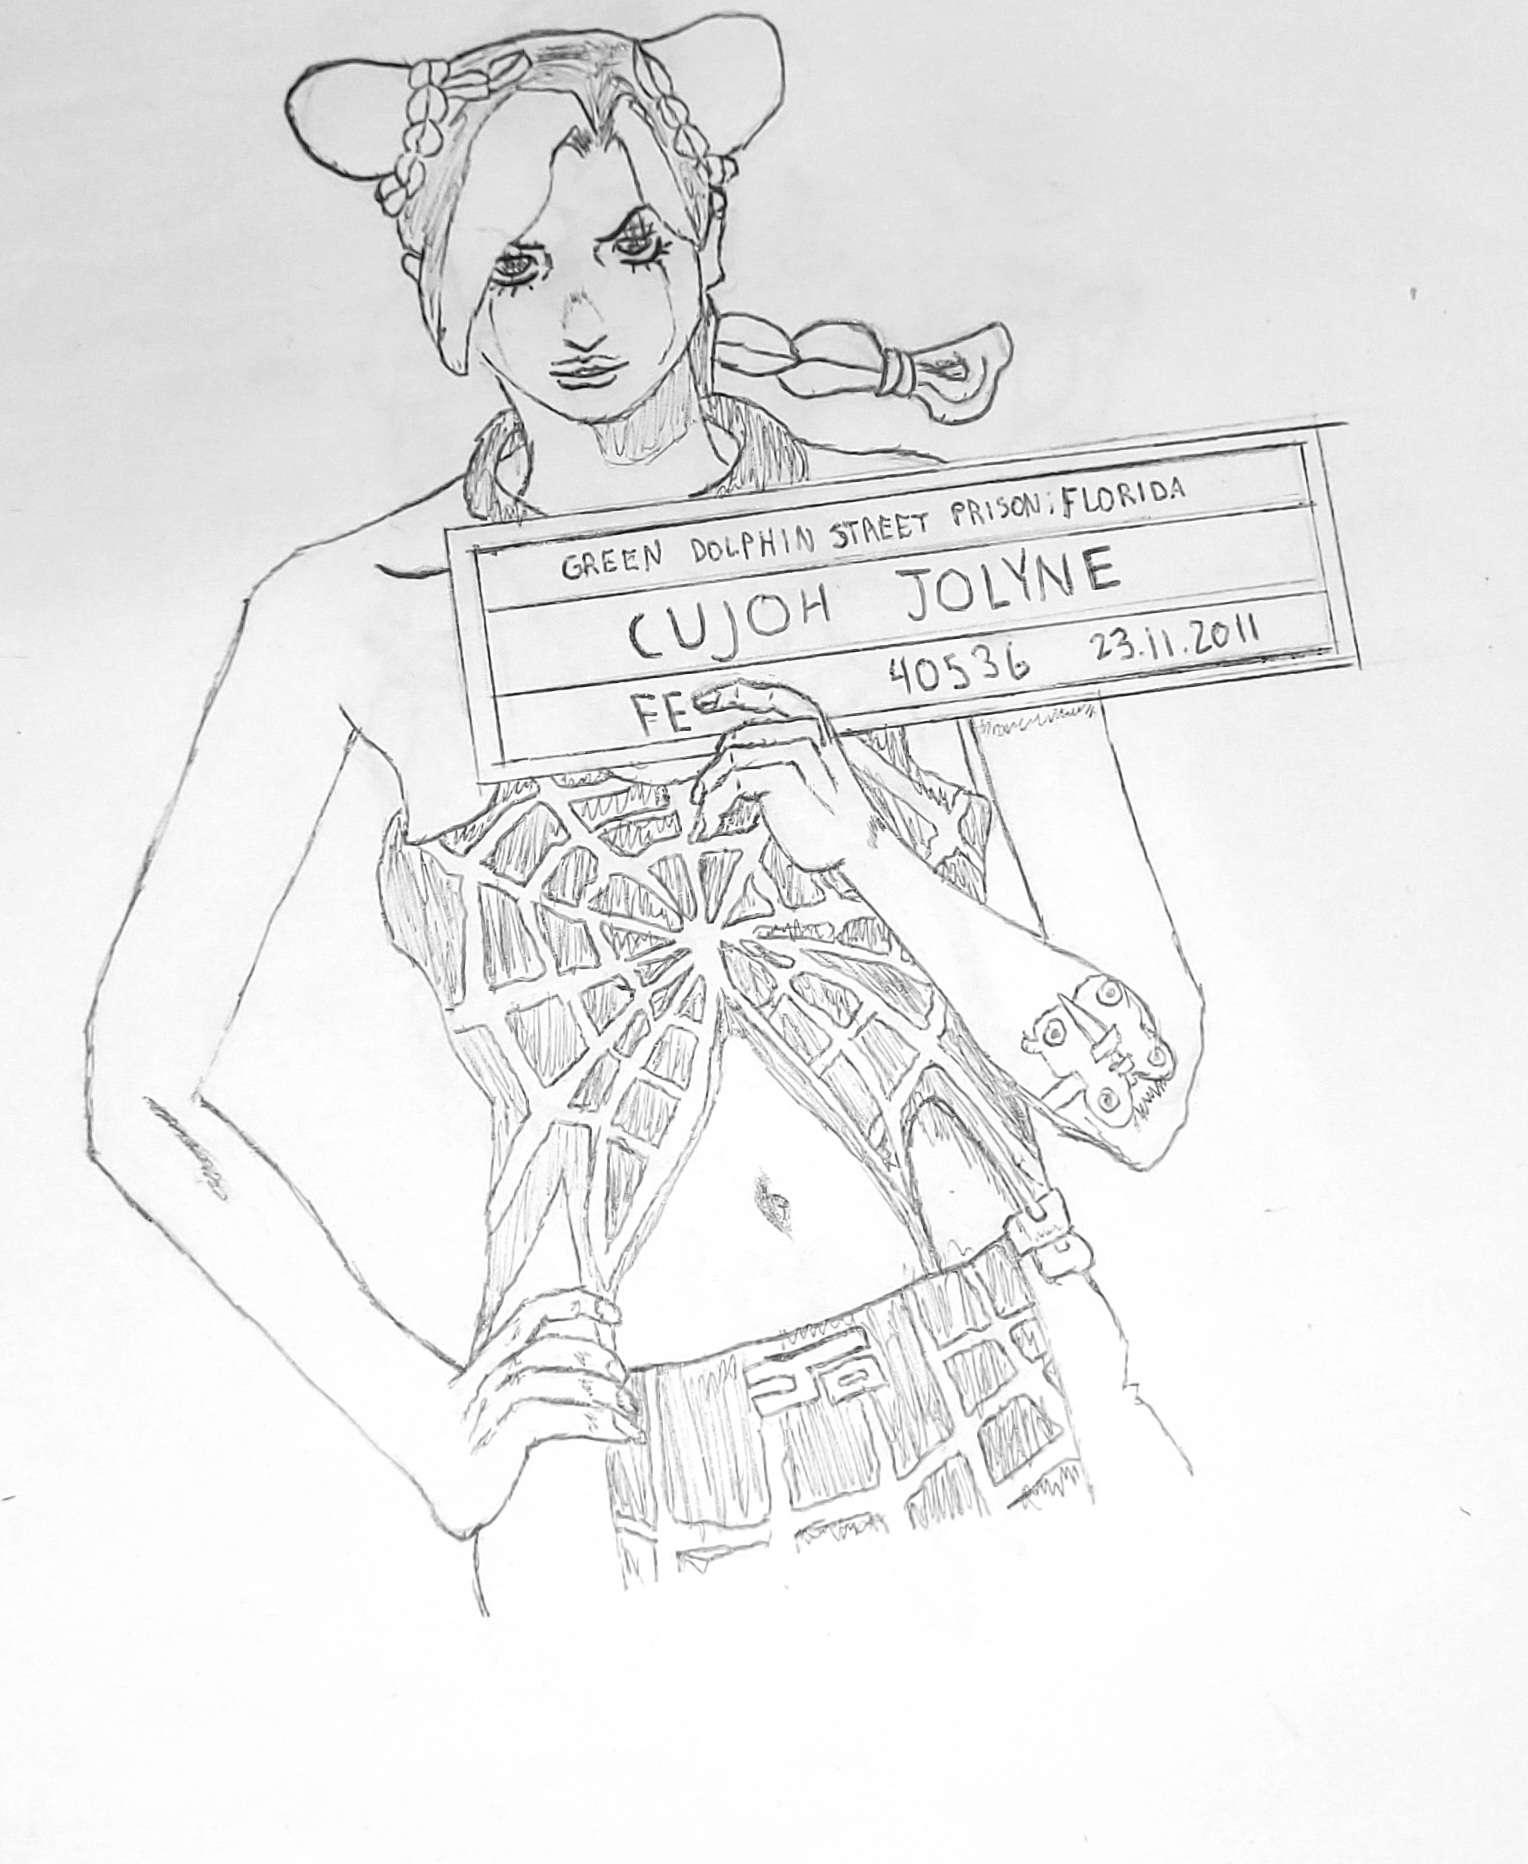 GREEN DOLPHIN STREET PRISON; FLORIDA
CUJOH JOLYNE
FE 40536 23.11.2011